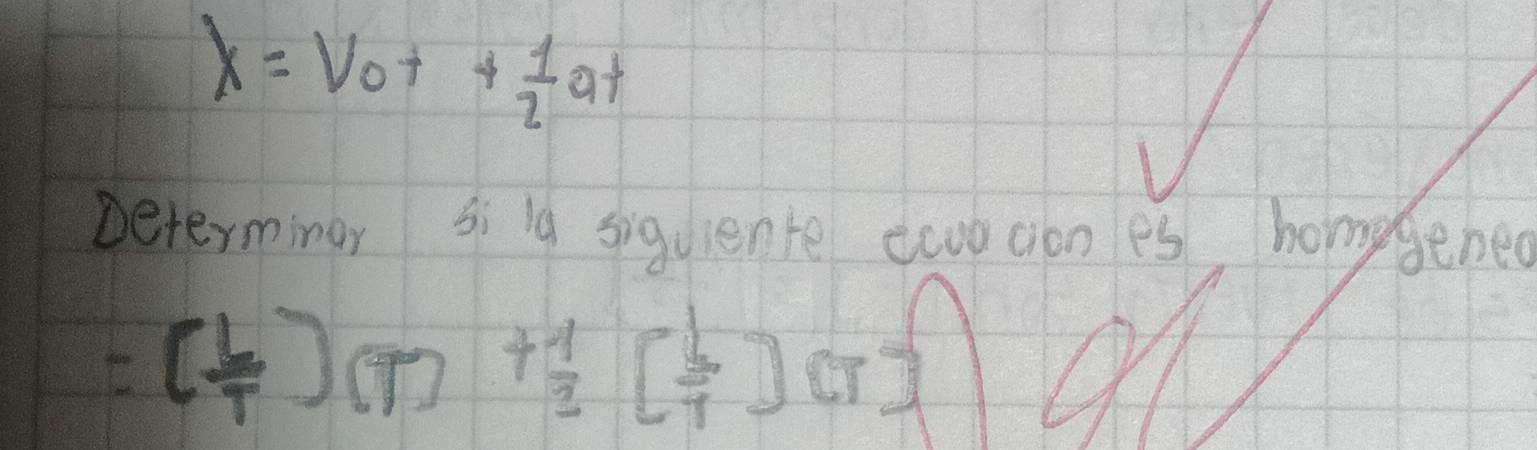 X = Vot + 1/2 at
Determinar si la siguiente ecuacion es homogenea
= [L/T] [T] + 1/2 [L/T] [T]